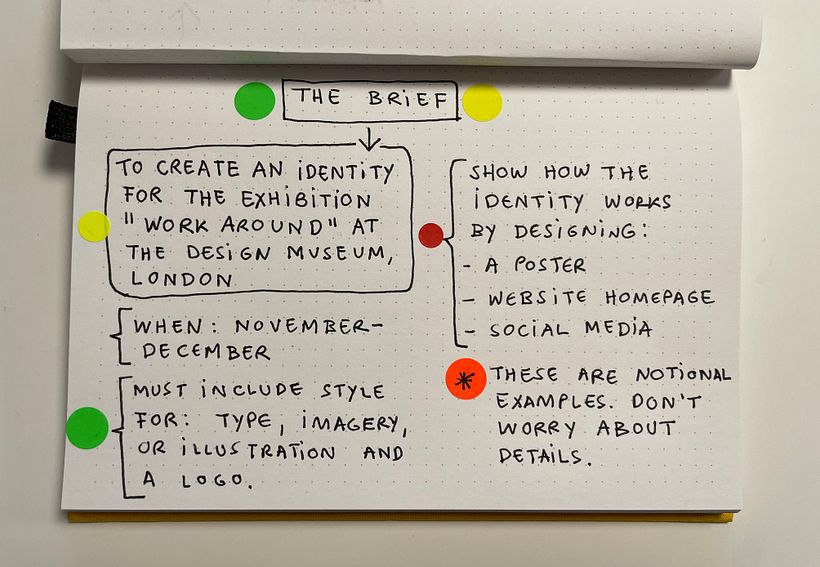 THE BRIEF
TO CREATE AN IDENTITY
FOR THE EXHIBITION
"WORK AROUND" AT
THE DESIGN MUSEUM,
LONDON
WHEN: NOVEMBER-
DECEMBER
MUST INCLUDE STYLE
FOR: TYPE, IMAGERY,
OR ILLUSTRATION AND
A LOGO.
SHOW HOW THE
IDENTITY WORKS
BY DESIGNING:
- A POSTER
- WEBSITE HOMEPAGE
- SOCIAL MEDIA
* THESE ARE NOTIONAL
EXAMPLES. DON'T
WORRY ABOUT
DETAILS.